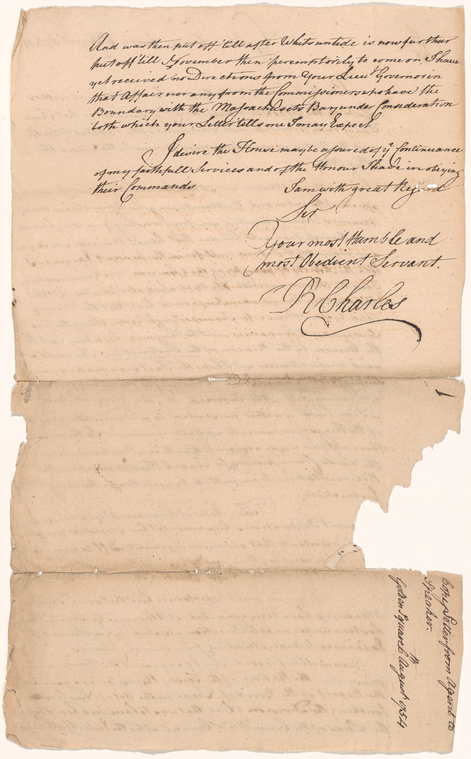 And was then put off 'till after Whitsuntide is now further
put off 'till November then peremptorily to come on I have
yet received no Directions from Your Lieut Governor in
that Affair nor any from the Commissioners who have the
Boundary with the Massachusets Bay under Consideration
both which your Letter tells me I may Expect
I desire the House may be assured of ye. continuance
of my faithfull Services and of the Honour I have in obeying
their Commands I am with great Regard
Sir
Your most Humble and
most Obedient Servant.
R Charles
Copy Letter from Agent to
Speaker.
Golden Square 6th August 1754